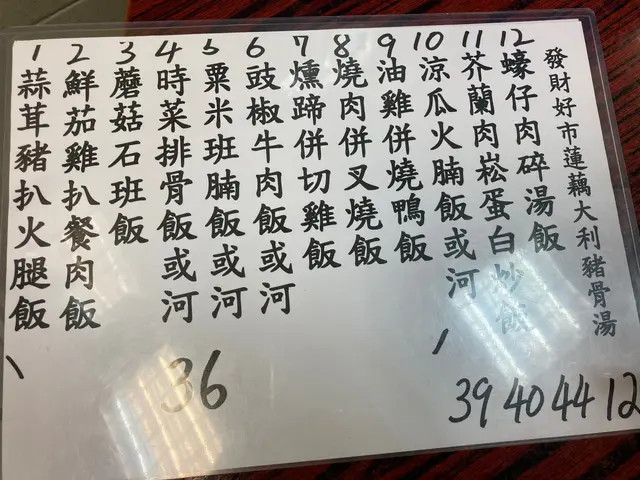 1 蒜茸豬扒火腿飯
2 鮮茄雞扒餐肉飯
3 蘑菇石班飯
4 時菜排骨飯或河
5 粟米班腩飯或河
6 豉椒牛肉飯或河
7 燻蹄併切雞飯
8 燒肉併叉燒飯
9 油雞併燒鴨飯
10 涼瓜火腩飯或河
11 芥蘭肉崧蛋白炒飯
12 蠔仔肉碎湯飯
發財好市蓮藕大利豬骨湯
36
39 40 44 12